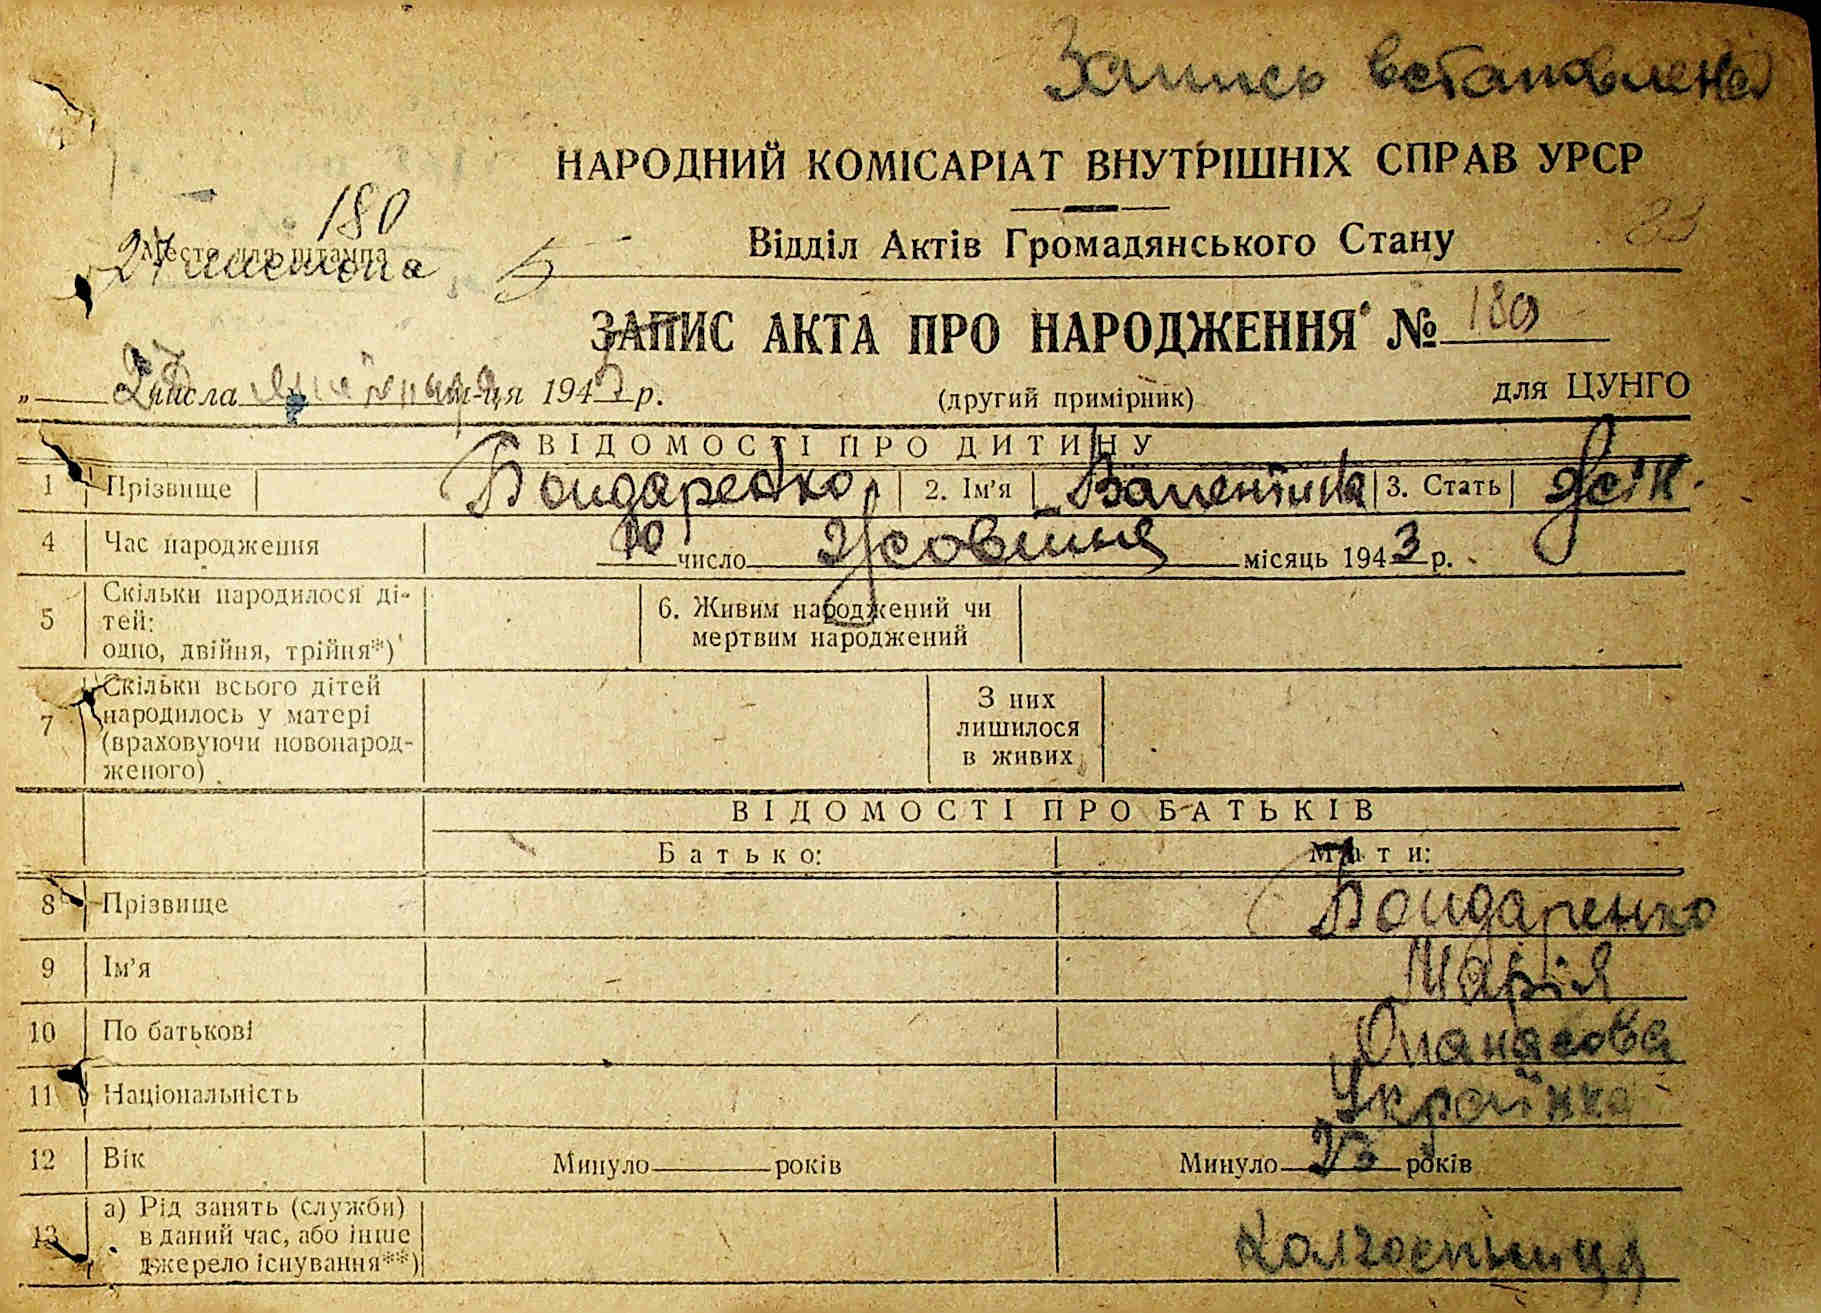 Запись встановлена
НАРОДНИЙ КОМІСАРІАТ ВНУТРІШНІХ СПРАВ УРСР
180
Відділ Актів Громадянського Стану
Место для штампа
27 листопа
ЗАПИС АКТА ПРО НАРОДЖЕННЯ № 180
„ 27 числа м-ця 194 р. (другий примірник) для ЦУНГО
ВІДОМОСТІ ПРО ДИТИНУ
1 Прізвище Бондаренко 2. Ім'я Валентина 3. Стать жін.
4 Час народження 10 число Жовтня місяць 1943 р.
5 Скільки народилося ді-
тей:
одно, двійня, трійня*)
6. Живим народжений чи
мертвим народжений
7 Скільки всього дітей
народилось у матері
(враховуючи новонарод-
женого)
З них
лишилося
в живих
ВІДОМОСТІ ПРО БАТЬКІВ
Батько: Мати:
8 Прізвище Бондаренко
9 Ім'я Марія
10 По батькові Опанасова
11 Національність Українка
12 Вік Минуло років Минуло 23 років
13 а) Рід занять (служби)
в даний час, або інше
джерело існування**)
Колгоспниця